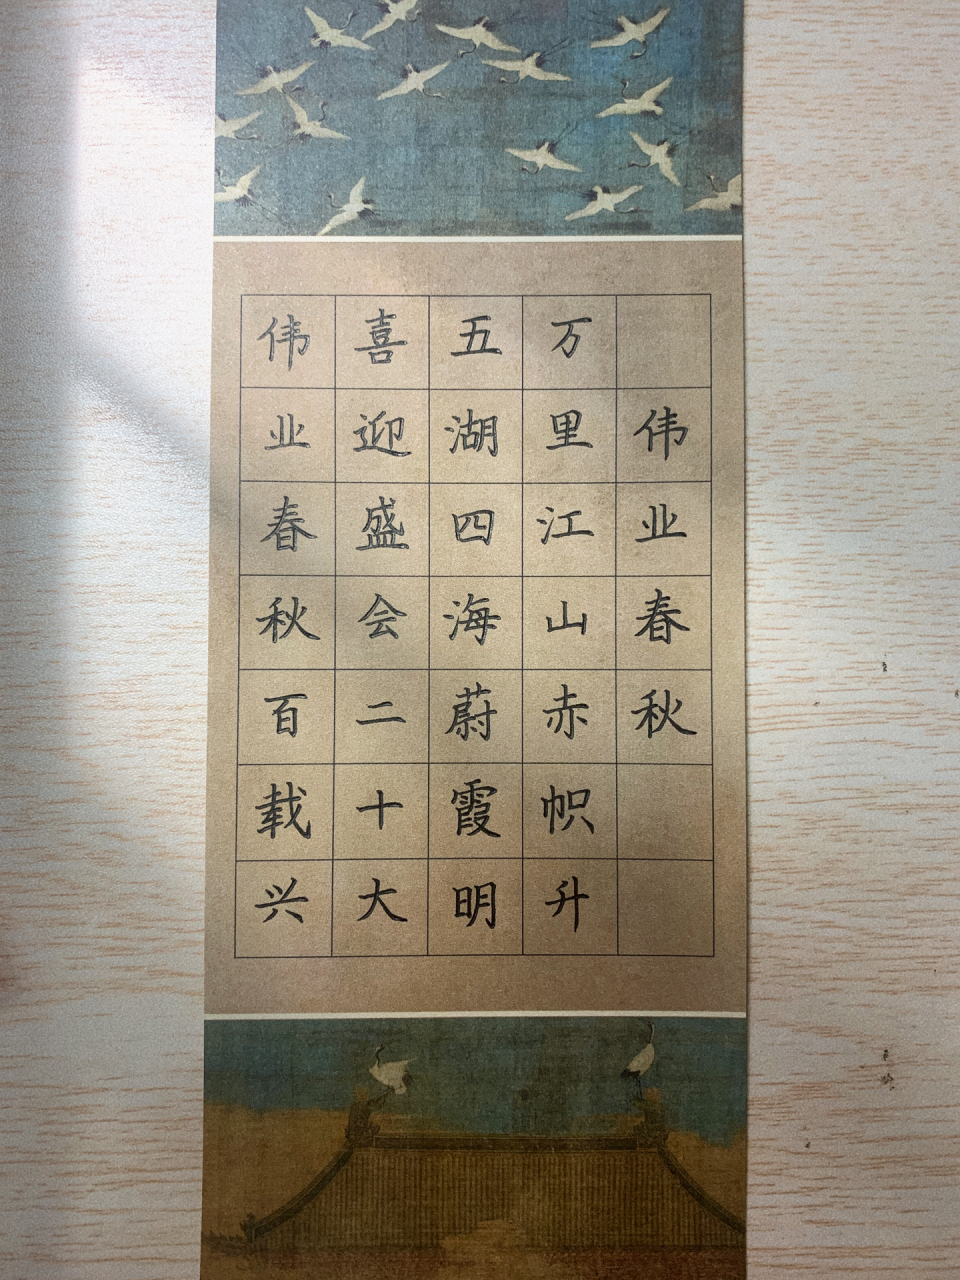 伟业春秋
万里江山赤帜升
五湖四海蔚霞明
喜迎盛会二十大
伟业春秋百载兴